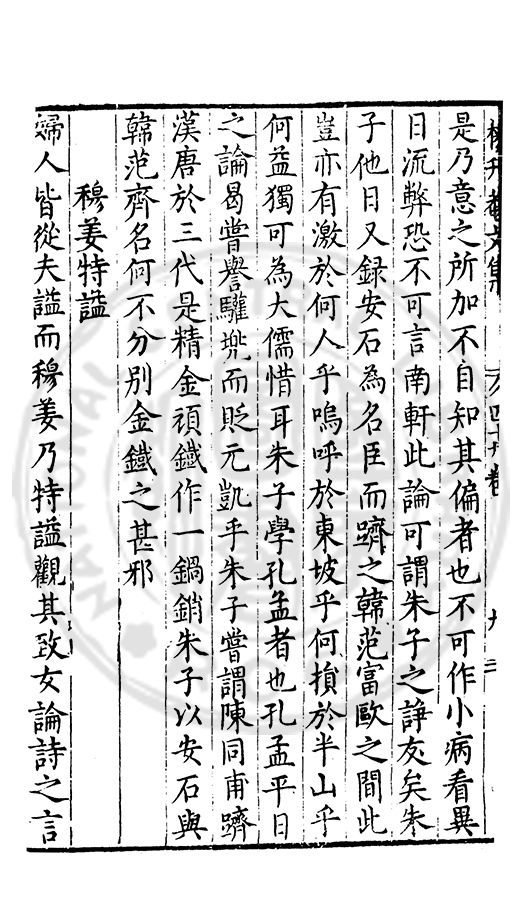 是乃意之所加不自知其偏者也不可作小病看異
日流弊恐不可言南軒此論可謂朱子之諍友矣朱
子他日又録安石為名臣而躋之韓范富歐之間此
豈亦有激於何人乎嗚呼於東坡乎何損於半山乎
何益獨可為大儒惜耳朱子學孔孟者也孔孟平日
之論曷嘗譽驩兠而貶元凱乎朱子嘗謂陳同甫躋
漢唐於三代是精金頑鐵作一鍋銷朱子以安石與
韓范齊名何不分別金鐵之甚邪
穆姜特謚
婦人皆從夫謚而穆姜乃特謚觀其致女論詩之言